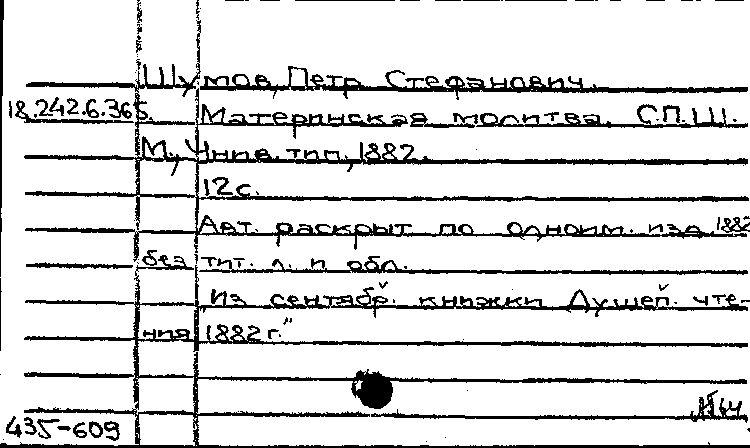 Шумов, Петр Стефанович.
18.242.6.365. Материнская молитва. С.П.Ш.
М., Унив. тип., 1882.
12 с.
Авт. раскрыт по одноим. изд. 1882
без тит. л. и обл.
„Из сентябр. книжки Душеп. чте-
ния 1882 г."
435-609